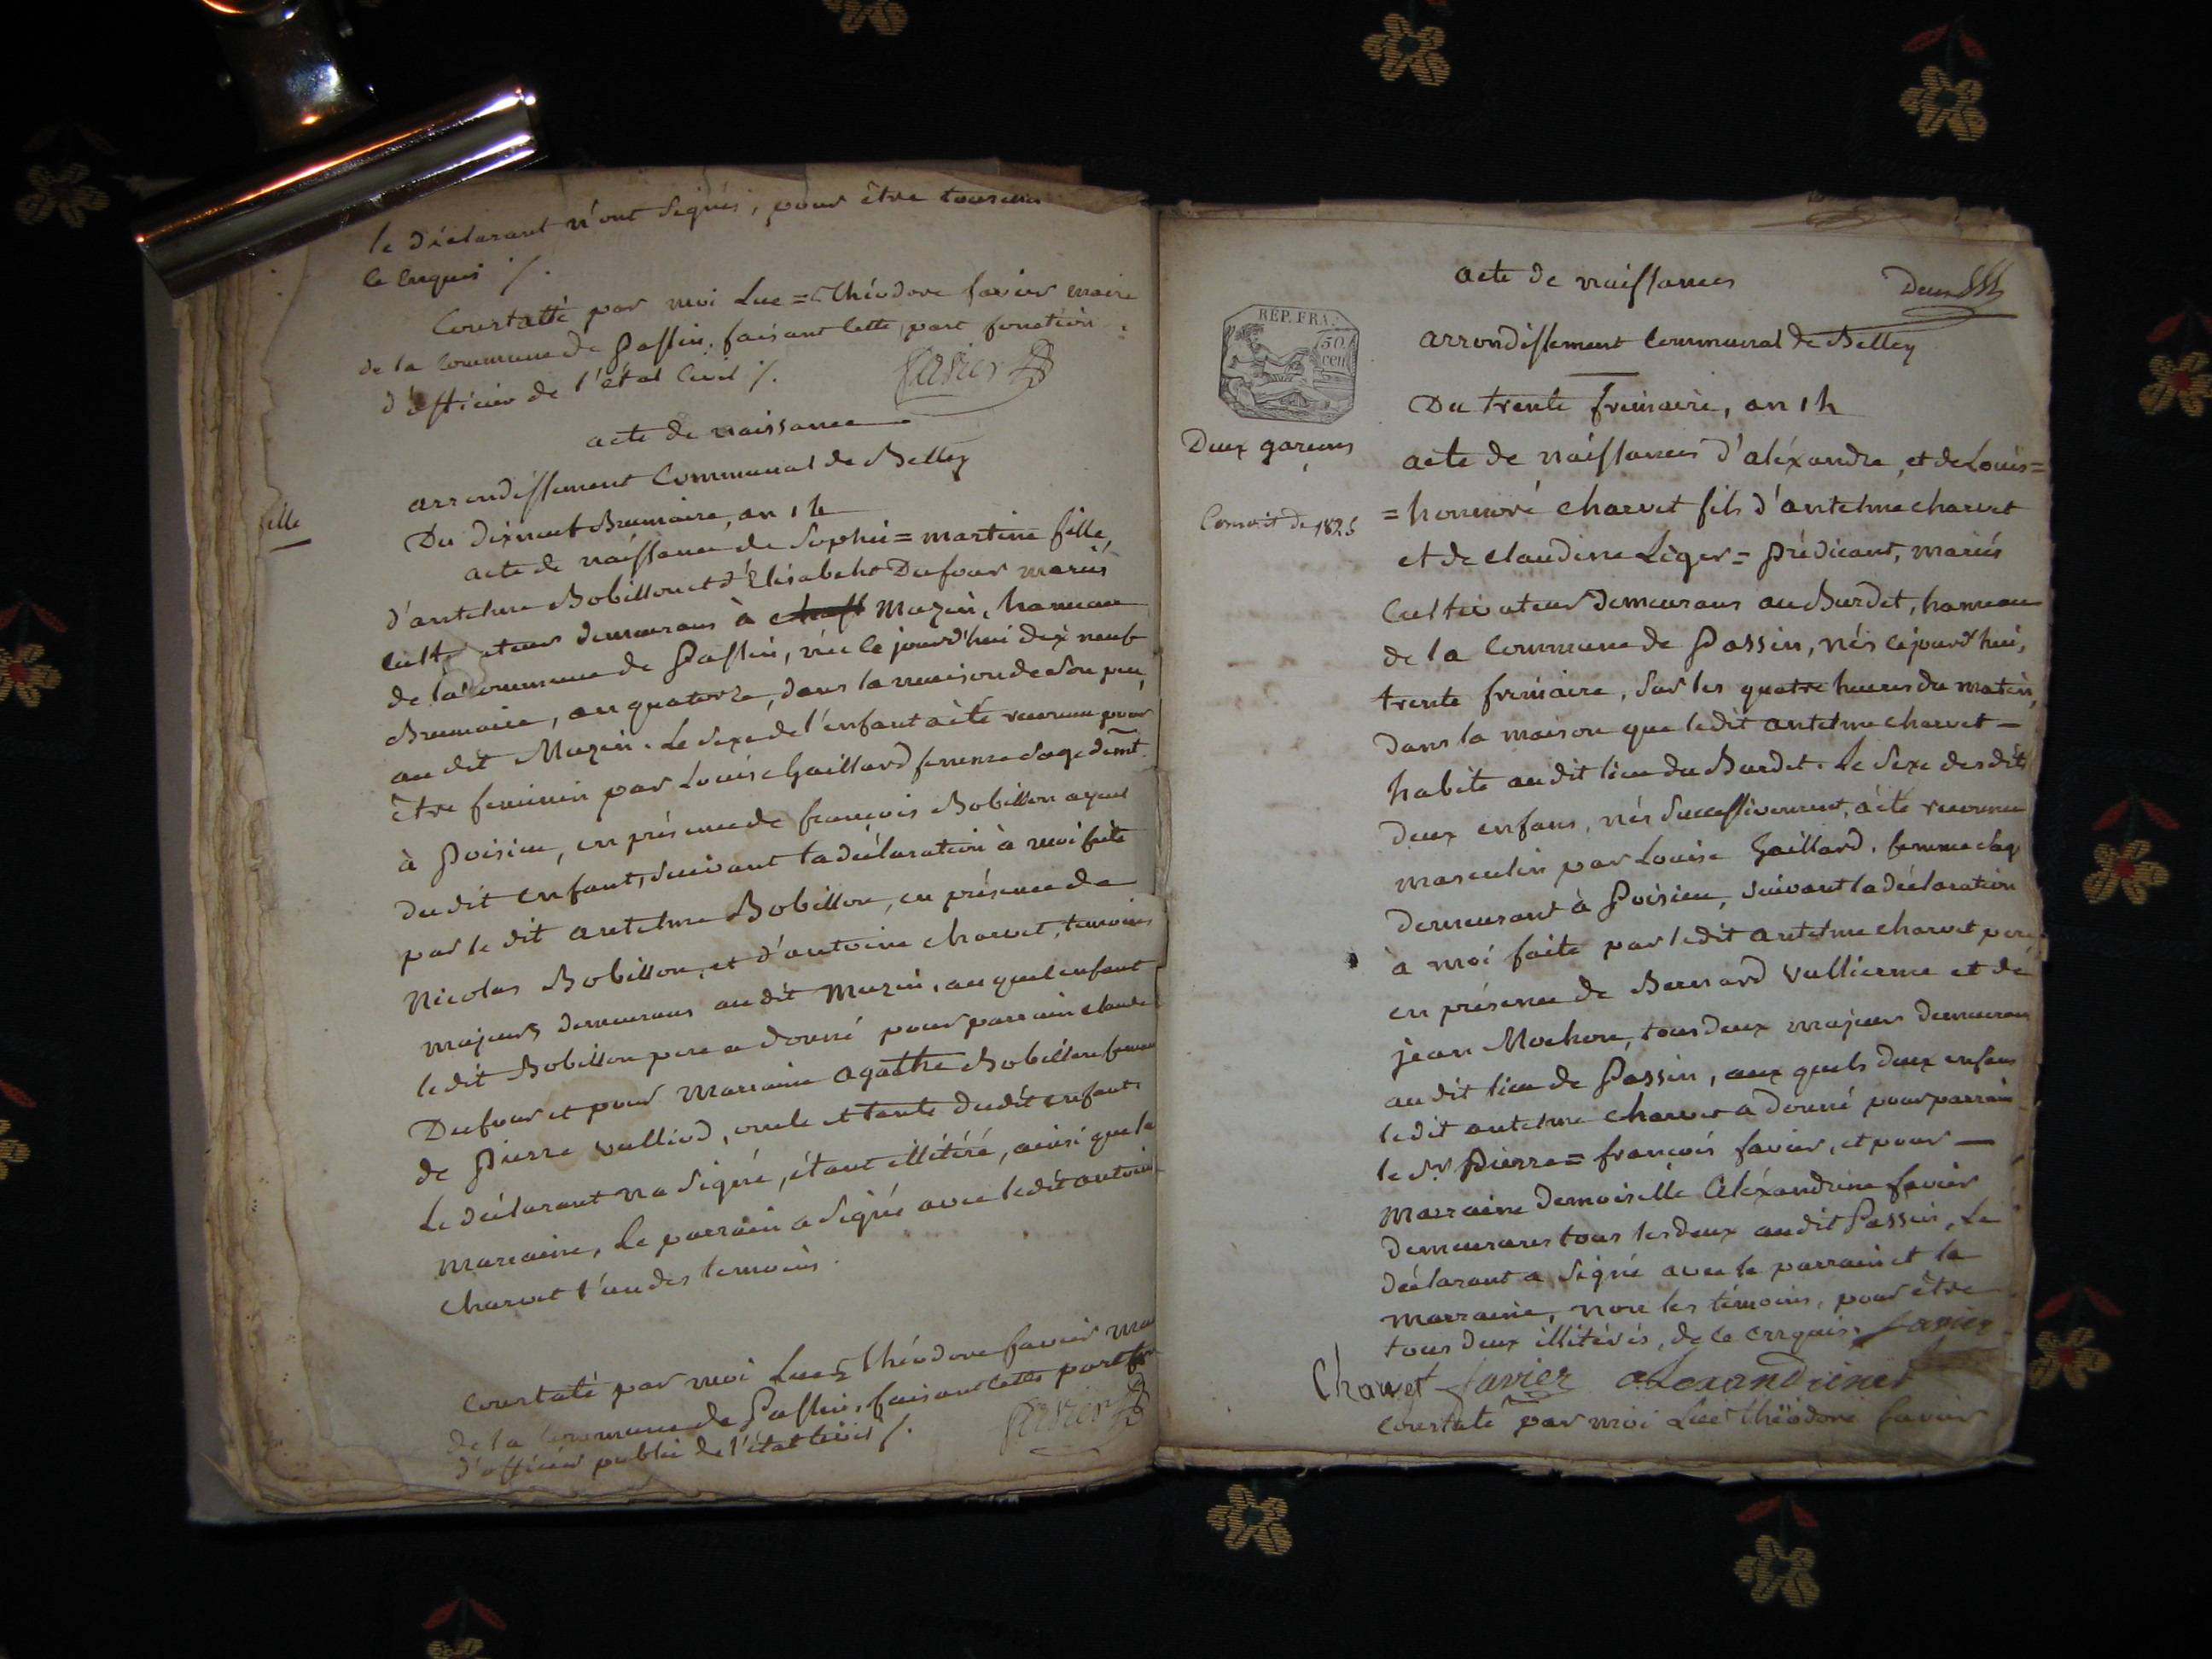 le déclarant n'ont signés, pour être
ce enquis ./.
Constatté par moi Luc = Théodore favier maire
de la commune de Passin, faisant cette part fonction
d'officier de l'état civil ./.
favier
acte de naissance
arrondissement Communal de Belley
fille
Du dixneuf Brumaire, an 14
acte de naissance de Sophie = martine fille,
d'antelme Bobillon et d'Elisabeht Dufour mariés
cultivateurs demeurans à Muzin, hameau
de la commune de Passin, née ce jourd'hui dix neuf
Brumaire, an quatorze, dans la maison de son pere,
au dit Muzin. Le sexe de l'enfant a été reconnu pour
être feminin par Louise Gaillard femme sage demt
à Poisieu, en présence de françois Bobillon ayeul
du dit enfant, suivant la déclaration à moi faite
par le dit antelme Bobillon, en présence de
Nicolas Bobillon, et d'antoine charvet, temoins
majeurs demeurans au dit Muzin, au quel enfant
le dit Bobillon pere a donné pour parrain claude
Dufour et pour marraine agathe Bobillon femme
de Pierre vulliod, oncle et tante du dit enfant.
Le déclarant n'a signé, étant illitéré, ainsi que la
marraine, le parrain a signé avec le dit antoine
charvet l'un des temoins.
Constaté par moi Luc = théodore favier
de la commune de Passin, faisant cette part
d'officier public de l'état civil ./.
favier
acte de naissances
Deux
RÉP. FRA.
50
cen
arrondissement Communal de Belley
Du trente frimaire, an 14
Deux garçons
acte de naissances d'aléxandre, et de Louis=
Conscrit de 1825
=honnoré charvet fils d'antelme charvet
et de claudine Léger = Prédicant, mariés
Cultivateurs demeurans au Burdet, hameau
de la commune de Passin, nés cejourd'hui,
trente frimaire, sur les quatre heures du matin,
dans la maison que ledit antelme charvet —
habite audit lieu du Burdet. Le sexe desdits
deux enfans, nés successivement, a été reconnu
masculin par Louise Gaillard, femme sage
demeurant à Poisieu, suivant la déclaration
à moi faite par ledit antelme charvet pere
en présence de Bernard vullierme et de
jean Mochon, tous deux majeurs demeurans
au dit lieu de Passin, aux quels deux enfans
ledit antelme charvet a donné pour parrain
le Sr. Pierre = françois favier, et pour —
marraine demoiselle Aléxandrine favier
demeurans tous les deux au dit Passin, Le
déclarant a signé avec le parrain et la
marraine, non les témoins, pour être
tous deux illitérés, de ce enquis. favier
Charvet favier alexandrine
Constaté par moi Luc = théodore favier